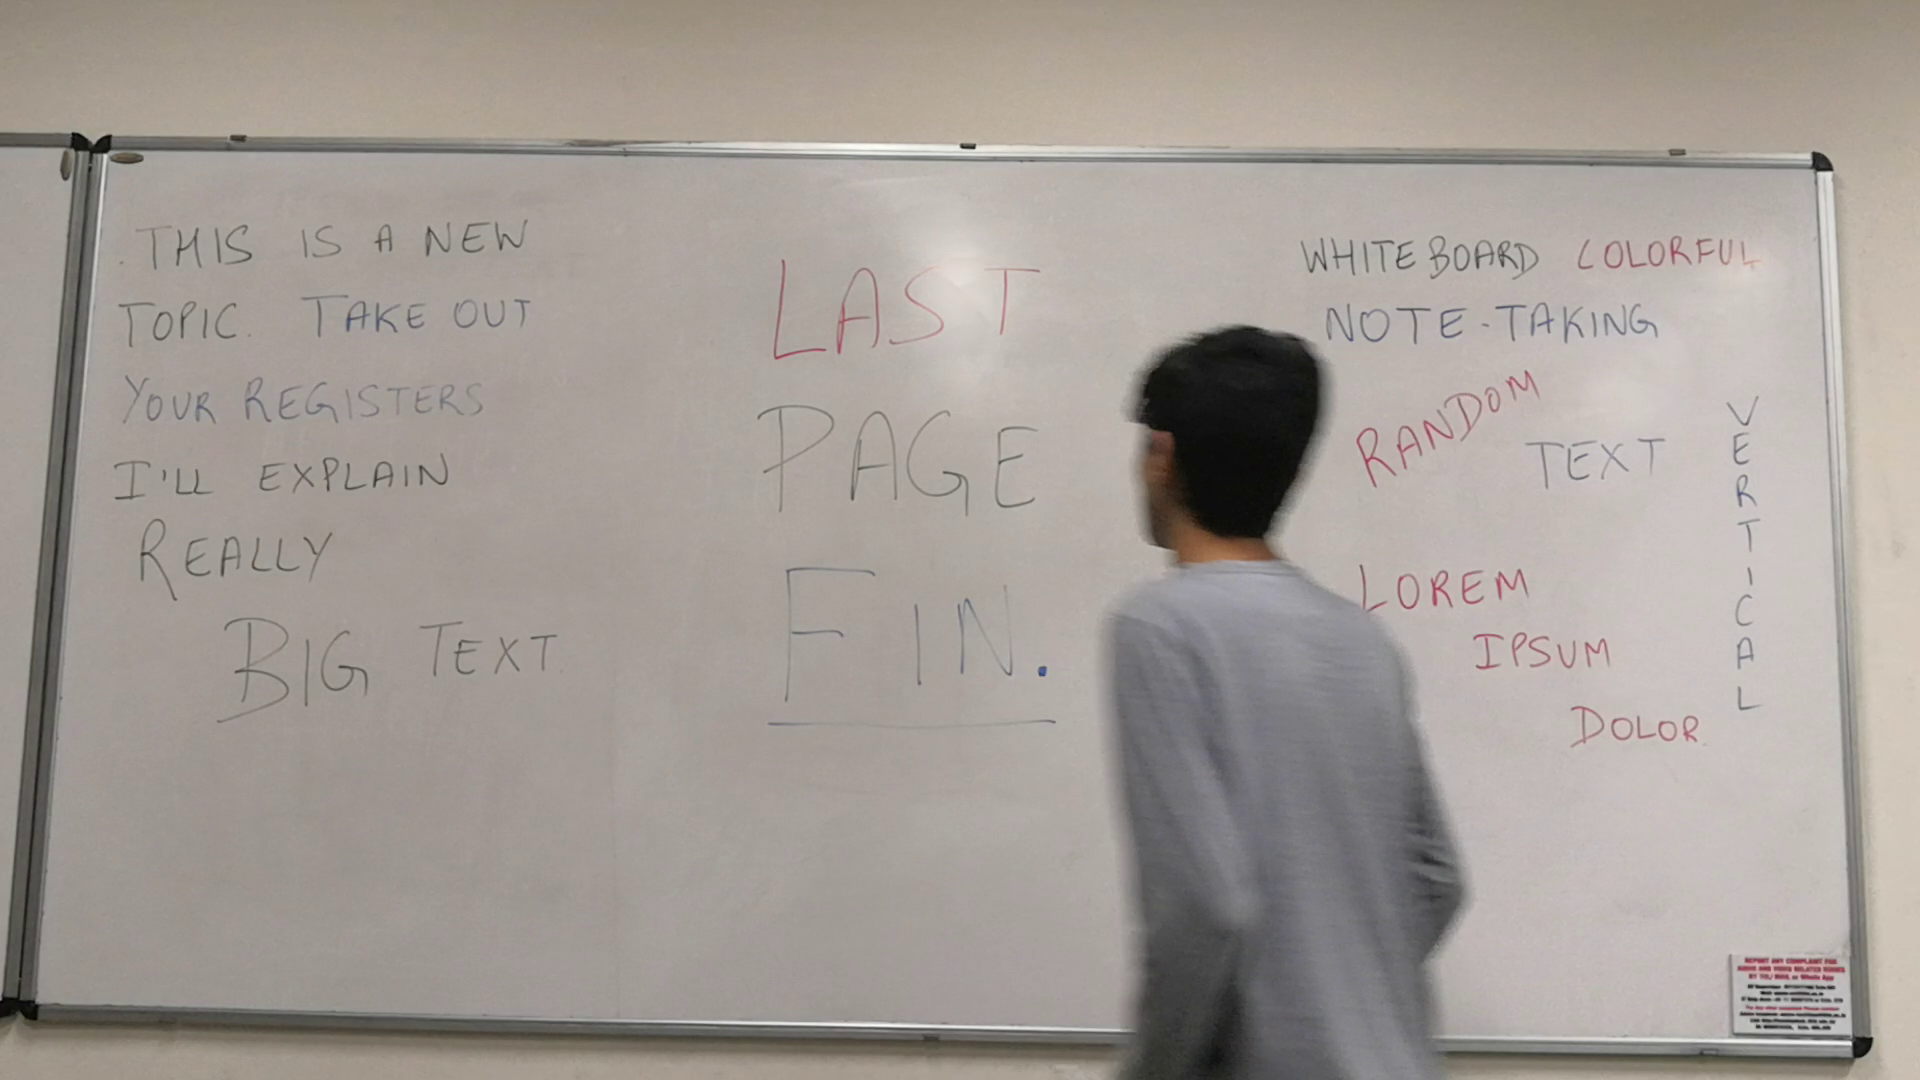 THIS IS A NEW
TOPIC. TAKE OUT
YOUR REGISTERS
I'LL EXPLAIN
REALLY
BIG TEXT
LAST
PAGE
FIN.
WHITEBOARD COLORFUL
NOTE-TAKING
RANDOM
TEXT
VERTICAL
LOREM
IPSUM
DOLOR
REPORT ANY COMPLAINT FOR
AUDIO AND VIDEO RELATED ISSUES